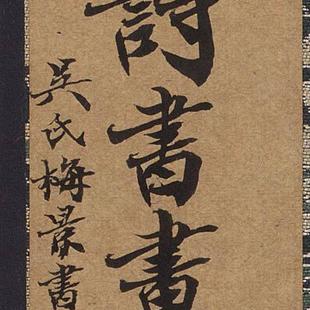 詩書畫
吳氏梅景書